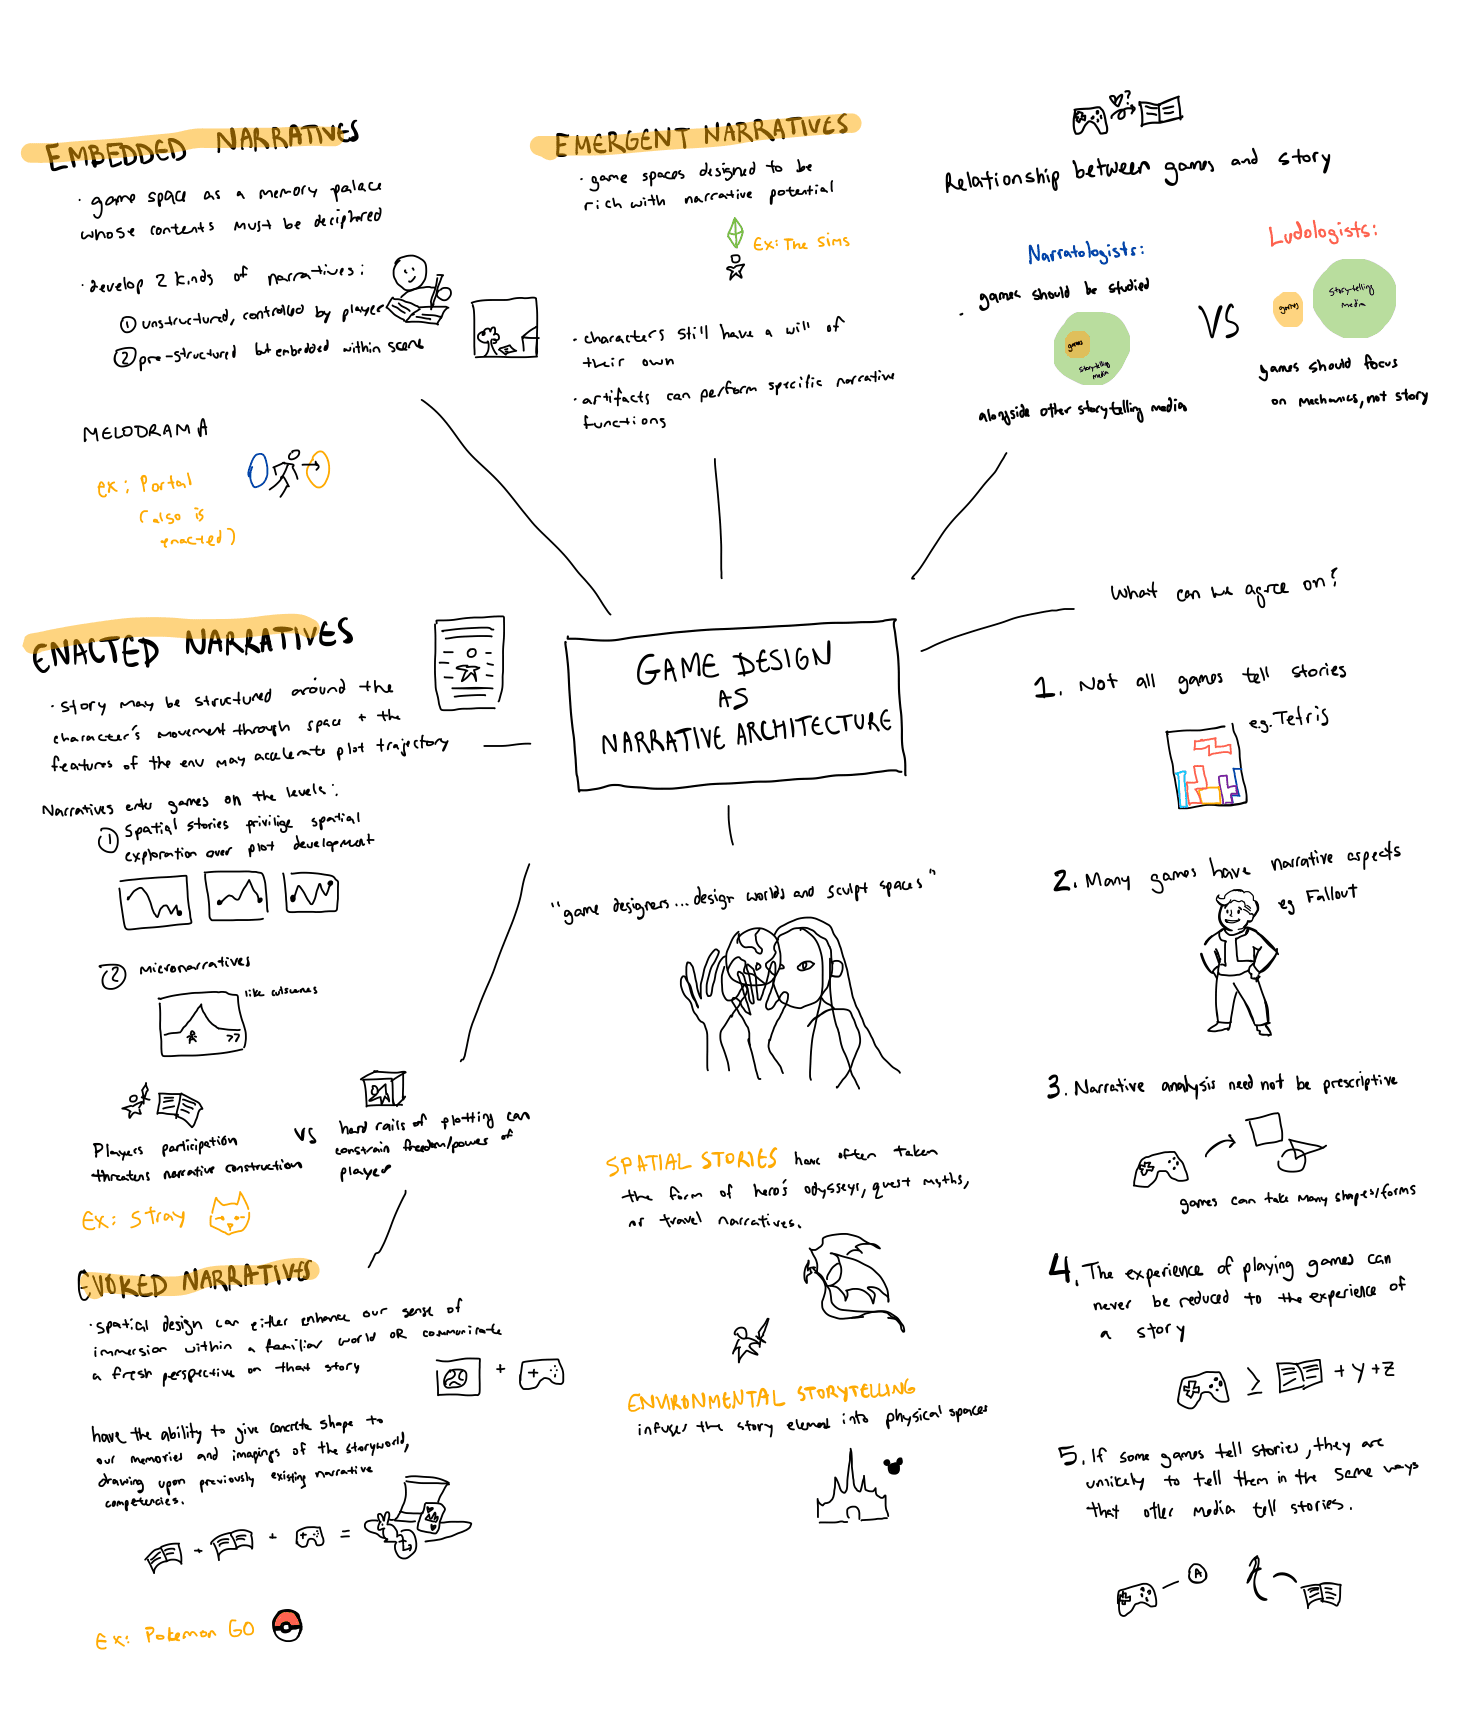 EMBEDDED NARRATIVES
· game space as a memory palace
whose contents must be deciphered
· develop 2 kinds of narratives:
① unstructured, controlled by player
② pre-structured but embedded within scene
MELODRAMA
ex: Portal
(also is
enacted)
EMERGENT NARRATIVES
· game spaces designed to be
rich with narrative potential
Ex: The Sims
· characters still have a will of
their own
· artifacts can perform specific narrative
functions
?
Relationship between games and story
Narratologists:
games should be studied
games
storytelling
media
alongside other storytelling media
VS
Ludologists:
games
storytelling
media
games should focus
on mechanics, not story
GAME DESIGN
AS
NARRATIVE ARCHITECTURE
ENACTED NARRATIVES
· story may be structured around the
character's movement through space + the
features of the env may accelerate plot trajectory
Narratives enter games on the levels:
① Spatial stories privilige spatial
exploration over plot development
② Micronarratives
like cutscenes
>>
Players participation
threatens narrative construction
VS
hard rails of plotting can
constrain freedom/power of
players
Ex: Stray
EVOKED NARRATIVES
· spatial design can either enhance our sense of
immersion within a familiar world OR communicate
a fresh perspective on that story
+
have the ability to give concrete shape to
our memories and imagings of the storyworld,
drawing upon previously existing narrative
competencies.
+ + =
Ex: Pokemon GO
"game designers... design worlds and sculpt spaces"
SPATIAL STORIES have often taken
the form of hero's odysseys, quest myths,
or travel narratives.
ENVIRONMENTAL STORYTELLING
infuses the story element into physical spaces
What can we agree on?
1. Not all games tell stories
eg. Tetris
2. Many games have narrative aspects
eg Fallout
3. Narrative analysis need not be prescriptive
games can take many shapes/forms
4. The experience of playing games can
never be reduced to the experience of
a story
≥ + y + z
5. If some games tell stories, they are
unlikely to tell them in the same ways
that other media tell stories.
A